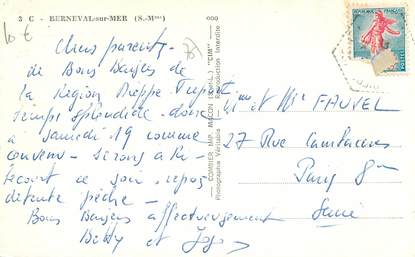 3 C - BERNEVAL-sur-MER (S.-Mme)
Chers parents
de Bons Baisers de
la Région Dieppe Tréport
Temps splendide donc
à samedi 19 comme
convenu - Serons à
ce soir repos
détente pêche -
Bons Baisers affectueusement
Betty et Jojo
COMBIER IMP. MACON (S.-&-L.) "CIM"
Photographie Véritable - Reproduction Interdite
Mme et Mr FAUVEL
27 Rue Cambacérès
Paris 8me
Seine